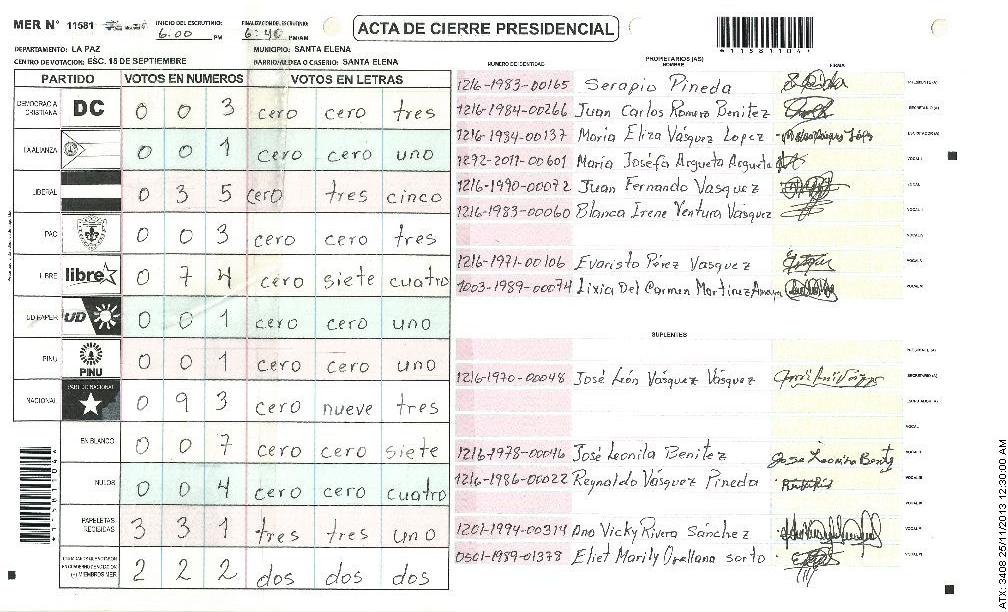 MER N° 11581
INICIO DEL ESCRUTINIO: 6:00 PM
FINALIZACION DEL ESCRUTINIO: 6:40 PM/AM
ACTA DE CIERRE PRESIDENCIAL
*11581104*
DEPARTAMENTO: LA PAZ
MUNICIPIO: SANTA ELENA
CENTRO DE VOTACION: ESC. 15 DE SEPTIEMBRE
BARRIO/ALDEA O CASERIO: SANTA ELENA
PARTIDO VOTOS EN NUMEROS VOTOS EN LETRAS
DEMOCRACIA CRISTIANA DC 0 0 3 cero cero tres
LA ALIANZA 0 0 1 cero cero uno
LIBERAL 0 3 5 cero tres cinco
PAC 0 0 3 cero cero tres
LIBRE libre 0 7 4 cero siete cuatro
UD FAPER UD 0 0 1 cero cero uno
PINU PINU 0 0 1 cero cero uno
NACIONAL PARTIDO NACIONAL 0 9 3 cero nueve tres
EN BLANCO 0 0 7 cero cero siete
NULOS 0 0 4 cero cero cuatro
PAPELETAS RECIBIDAS 3 3 1 tres tres uno
(+) MIEMBROS MER 2 2 2 dos dos dos
PROPIETARIOS (AS)
NUMERO DE IDENTIDAD NOMBRE FIRMA
1216-1983-00165 Serapio Pineda PRESIDENTE (A)
1216-1984-00266 Juan Carlos Romero Benitez SECRETARIO (A)
1216-1984-00137 Maria Eliza Vásquez Lopez ESCRUTADOR (A)
1292-2011-00601 María Joséfa Argueta Argueta VOCAL I
1216-1990-00072 Juan Fernando Vasquez
1216-1983-00060 Blanca Irene Ventura Vásquez
1216-1971-00106 Evaristo Pérez Vasquez
1003-1989-00074 Lixia Del Carmen Martinez Amaya
SUPLENTES
1216-1970-00048 José León Vásquez Vásquez SECRETARIO (A)
1216-1978-00046 José Leonila Benitez
1216-1986-00022 Reynaldo Vásquez Pineda
1201-1994-00314 Ana Vicky Rivera Sánchez
0501-1989-01378 Eliet Marily Orellana sorto
*11581104*
ATX: 3408 25/11/2013 12:30:00 AM